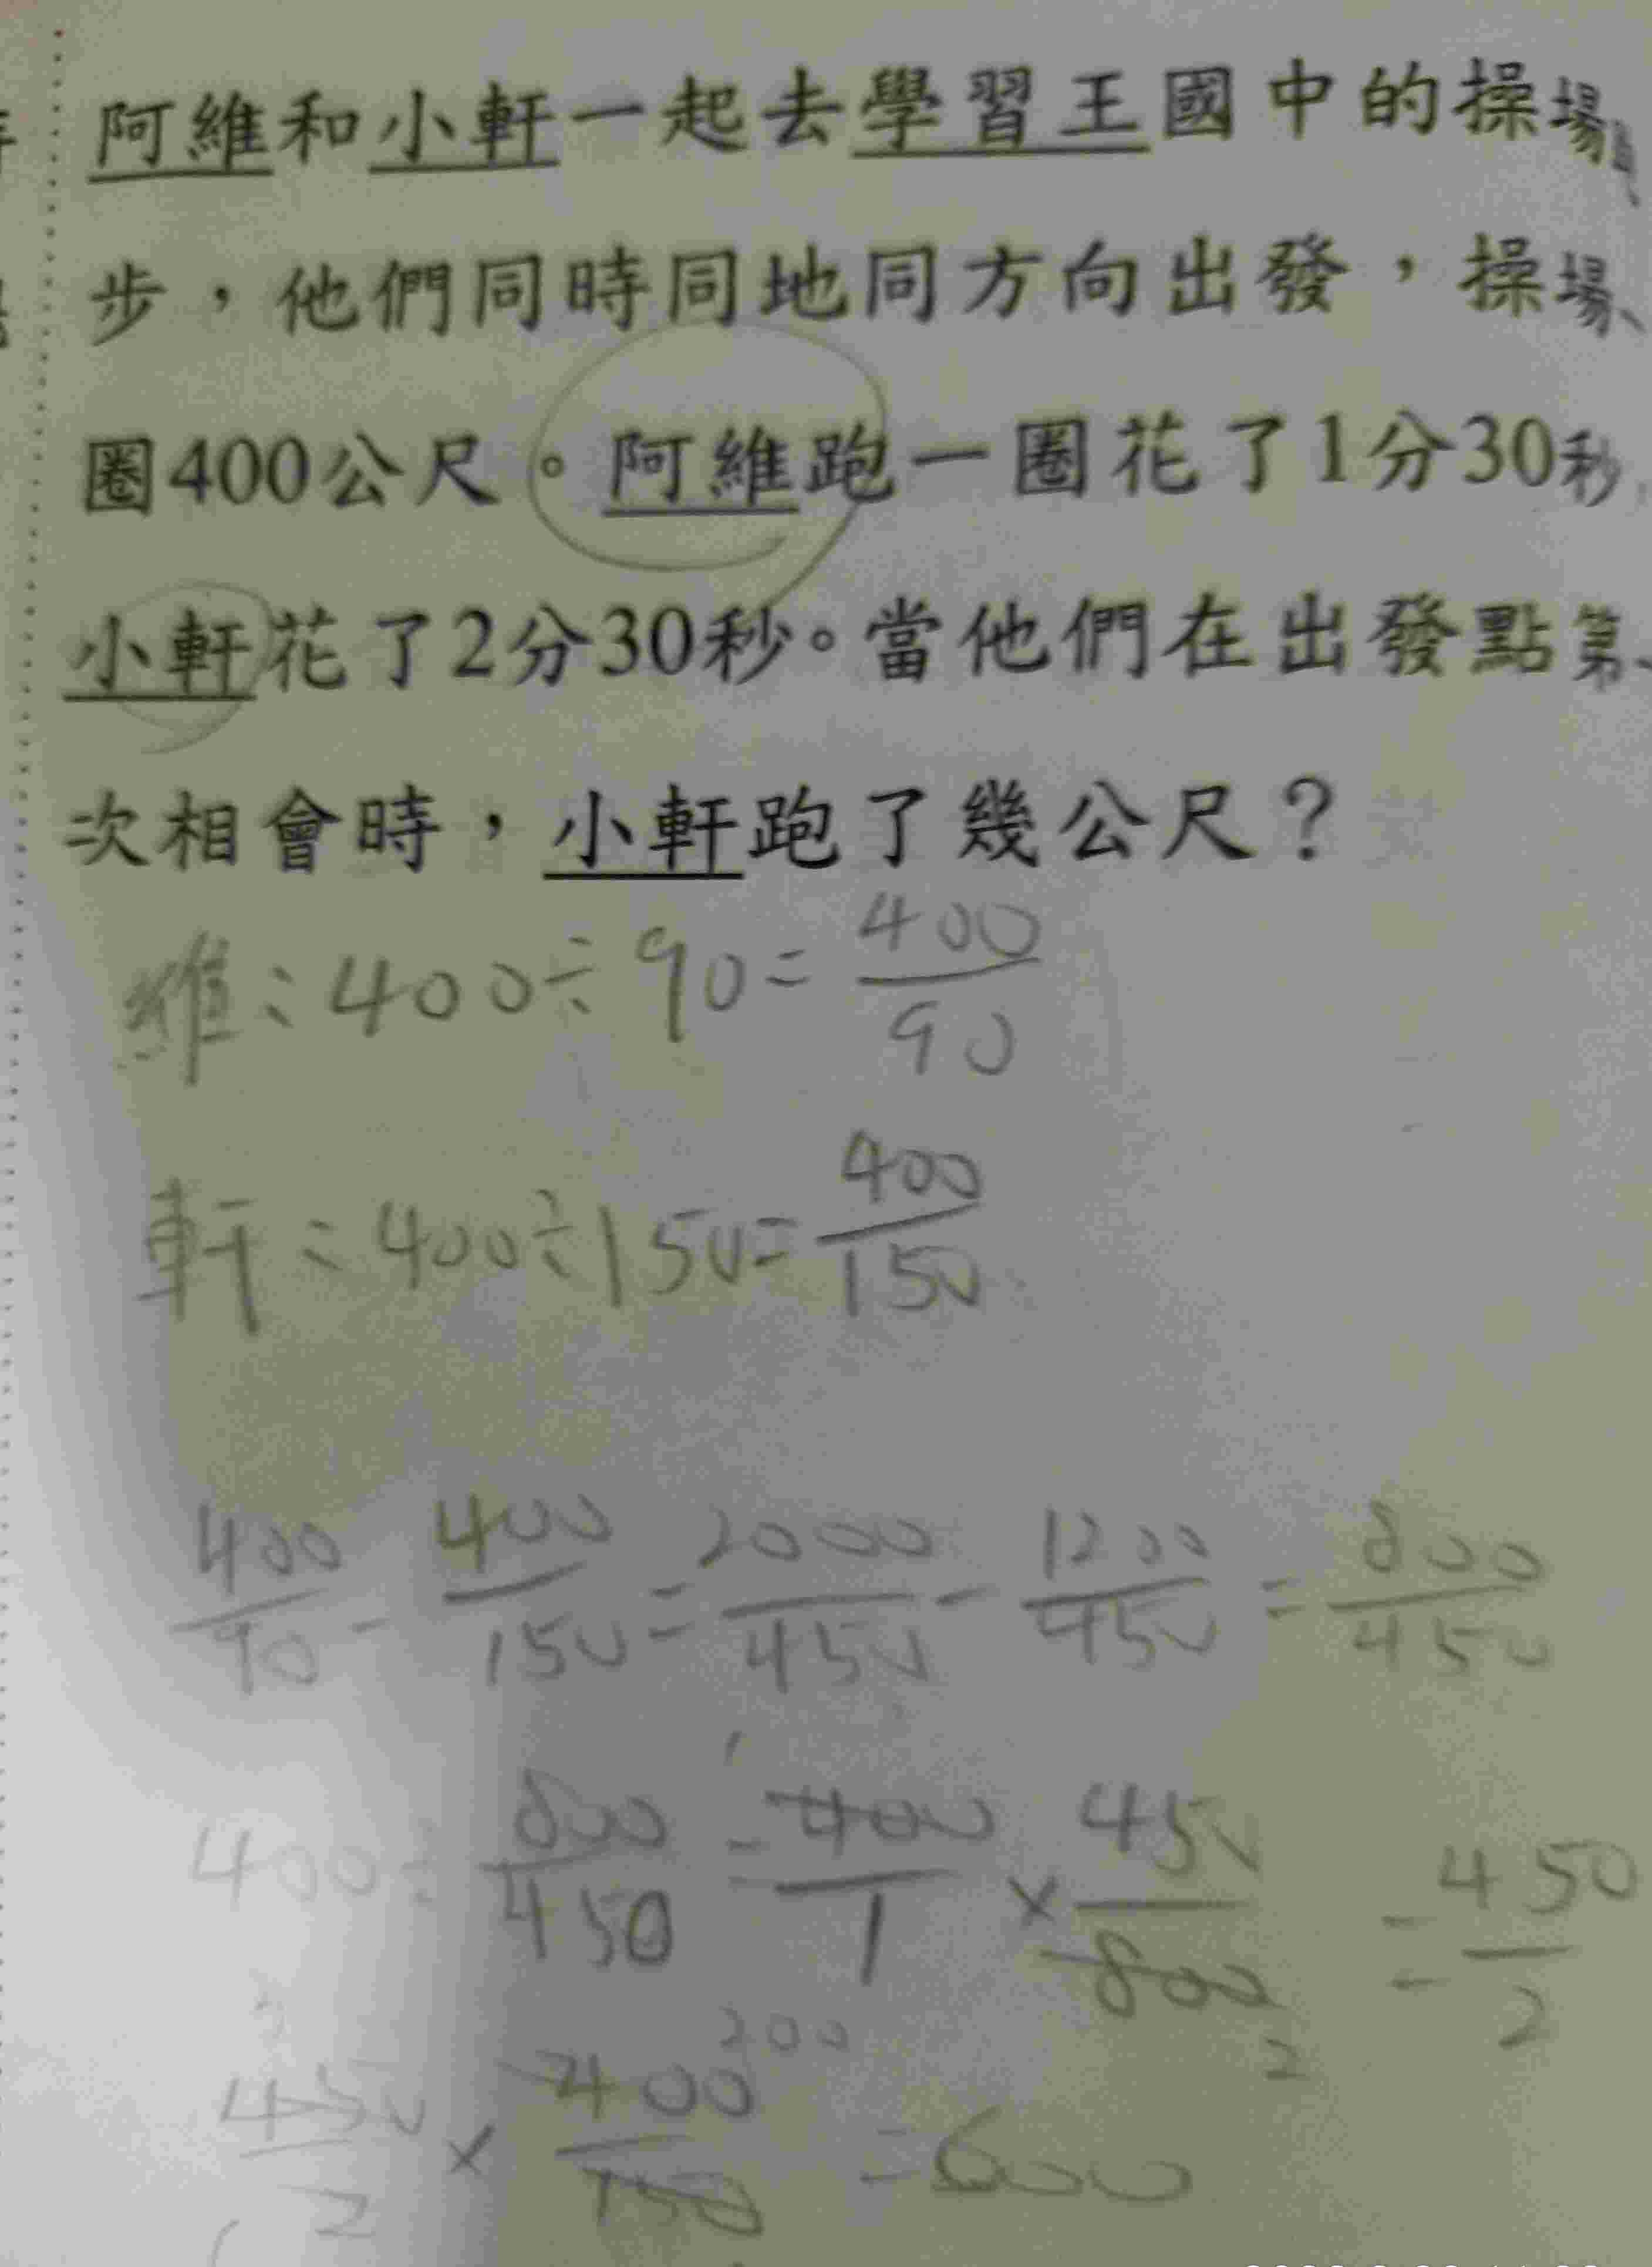 阿維和小軒一起去學習王國中的操場
步，他們同時同地同方向出發，操場
圈400公尺。阿維跑一圈花了1分30秒
小軒花了2分30秒。當他們在出發點第
次相會時，小軒跑了幾公尺？
維：400÷90=400/90
軒：400÷150=400/150
400/90-400/150=2000/450-1200/450=800/450
400÷800/450=400/1×450/800=450/2
1
2
450/2×400/150=600
200